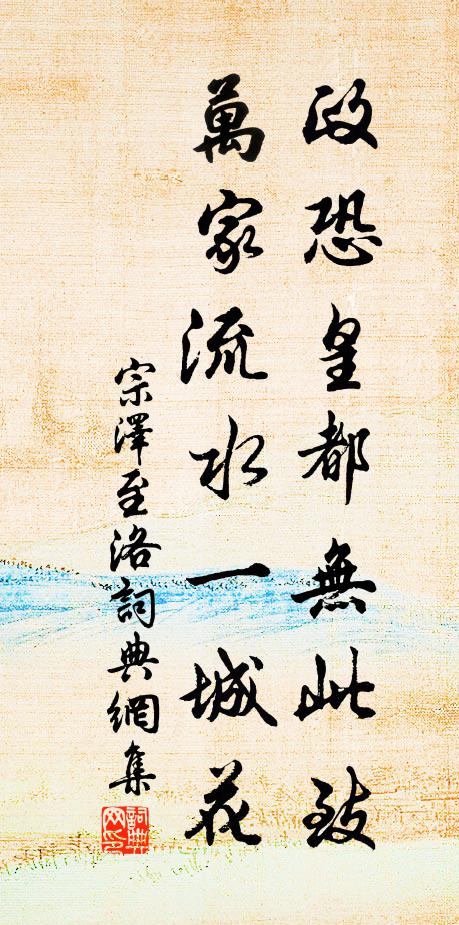 政恐皇都無此致
萬家流水一城花
宗澤至洛詞典網集